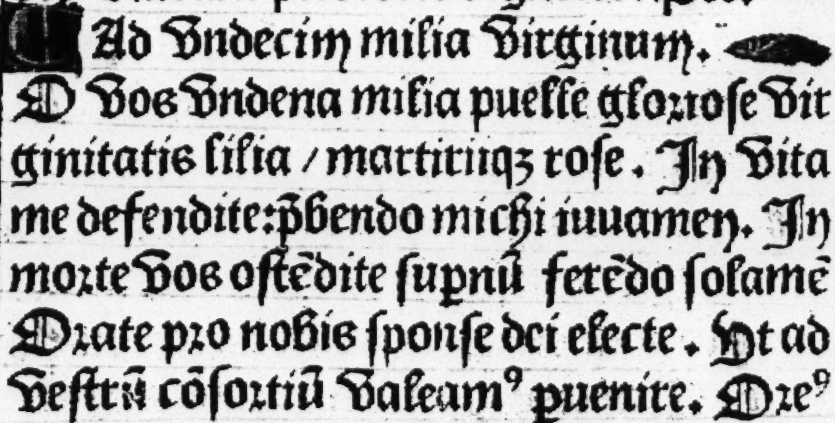 Ad Vndecim milia Virginum.
O Vos Vndena milia puelle gloriose Vir
ginitatis lilia / martiriiqꝫ rose. In Vita
me defendite: p̄bendo michi iuuamen. In
morte Vos ostēdite supnū ferēdo solamē
Orate pro nobis sponse dei electe. Vt ad
Vestrū cōsortiū Valeamꝰ ꝑuenire. Oreꝰ